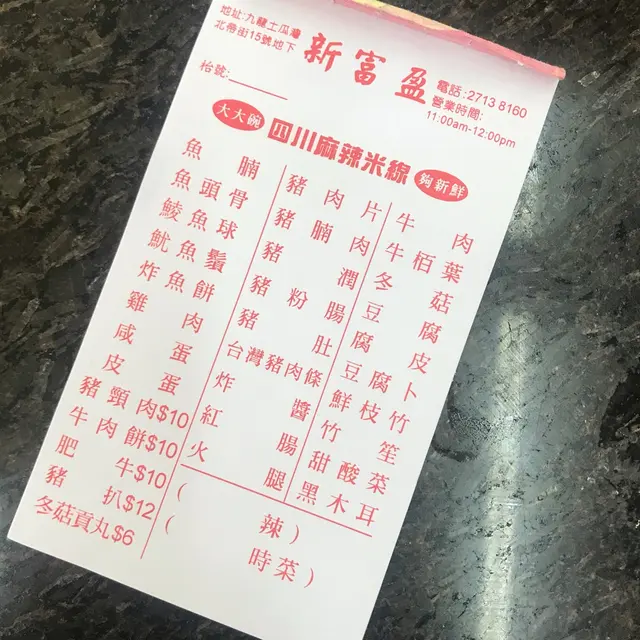 地址:九龍土瓜灣
北帝街15號地下
新富盈
電話:2713 8160
營業時間:
11:00am-12:00pm
枱號:
大大碗 四川麻辣米線 夠新鮮
魚腩
魚頭骨
鯪魚球
魷魚鬚
炸魚餅
雞肉
咸蛋
皮蛋
豬頸肉$10
牛肉餅$10
肥牛$10
豬扒$12
冬菇貢丸$6
豬肉片
豬腩肉
豬潤
豬粉腸
豬肚
台灣豬肉條
炸醬
紅腸
火腿
( 辣 )
( 時菜 )
牛肉
牛栢葉
冬菇
豆腐
腐皮
豆腐卜
鮮枝竹
竹笙
甜酸菜
黑木耳